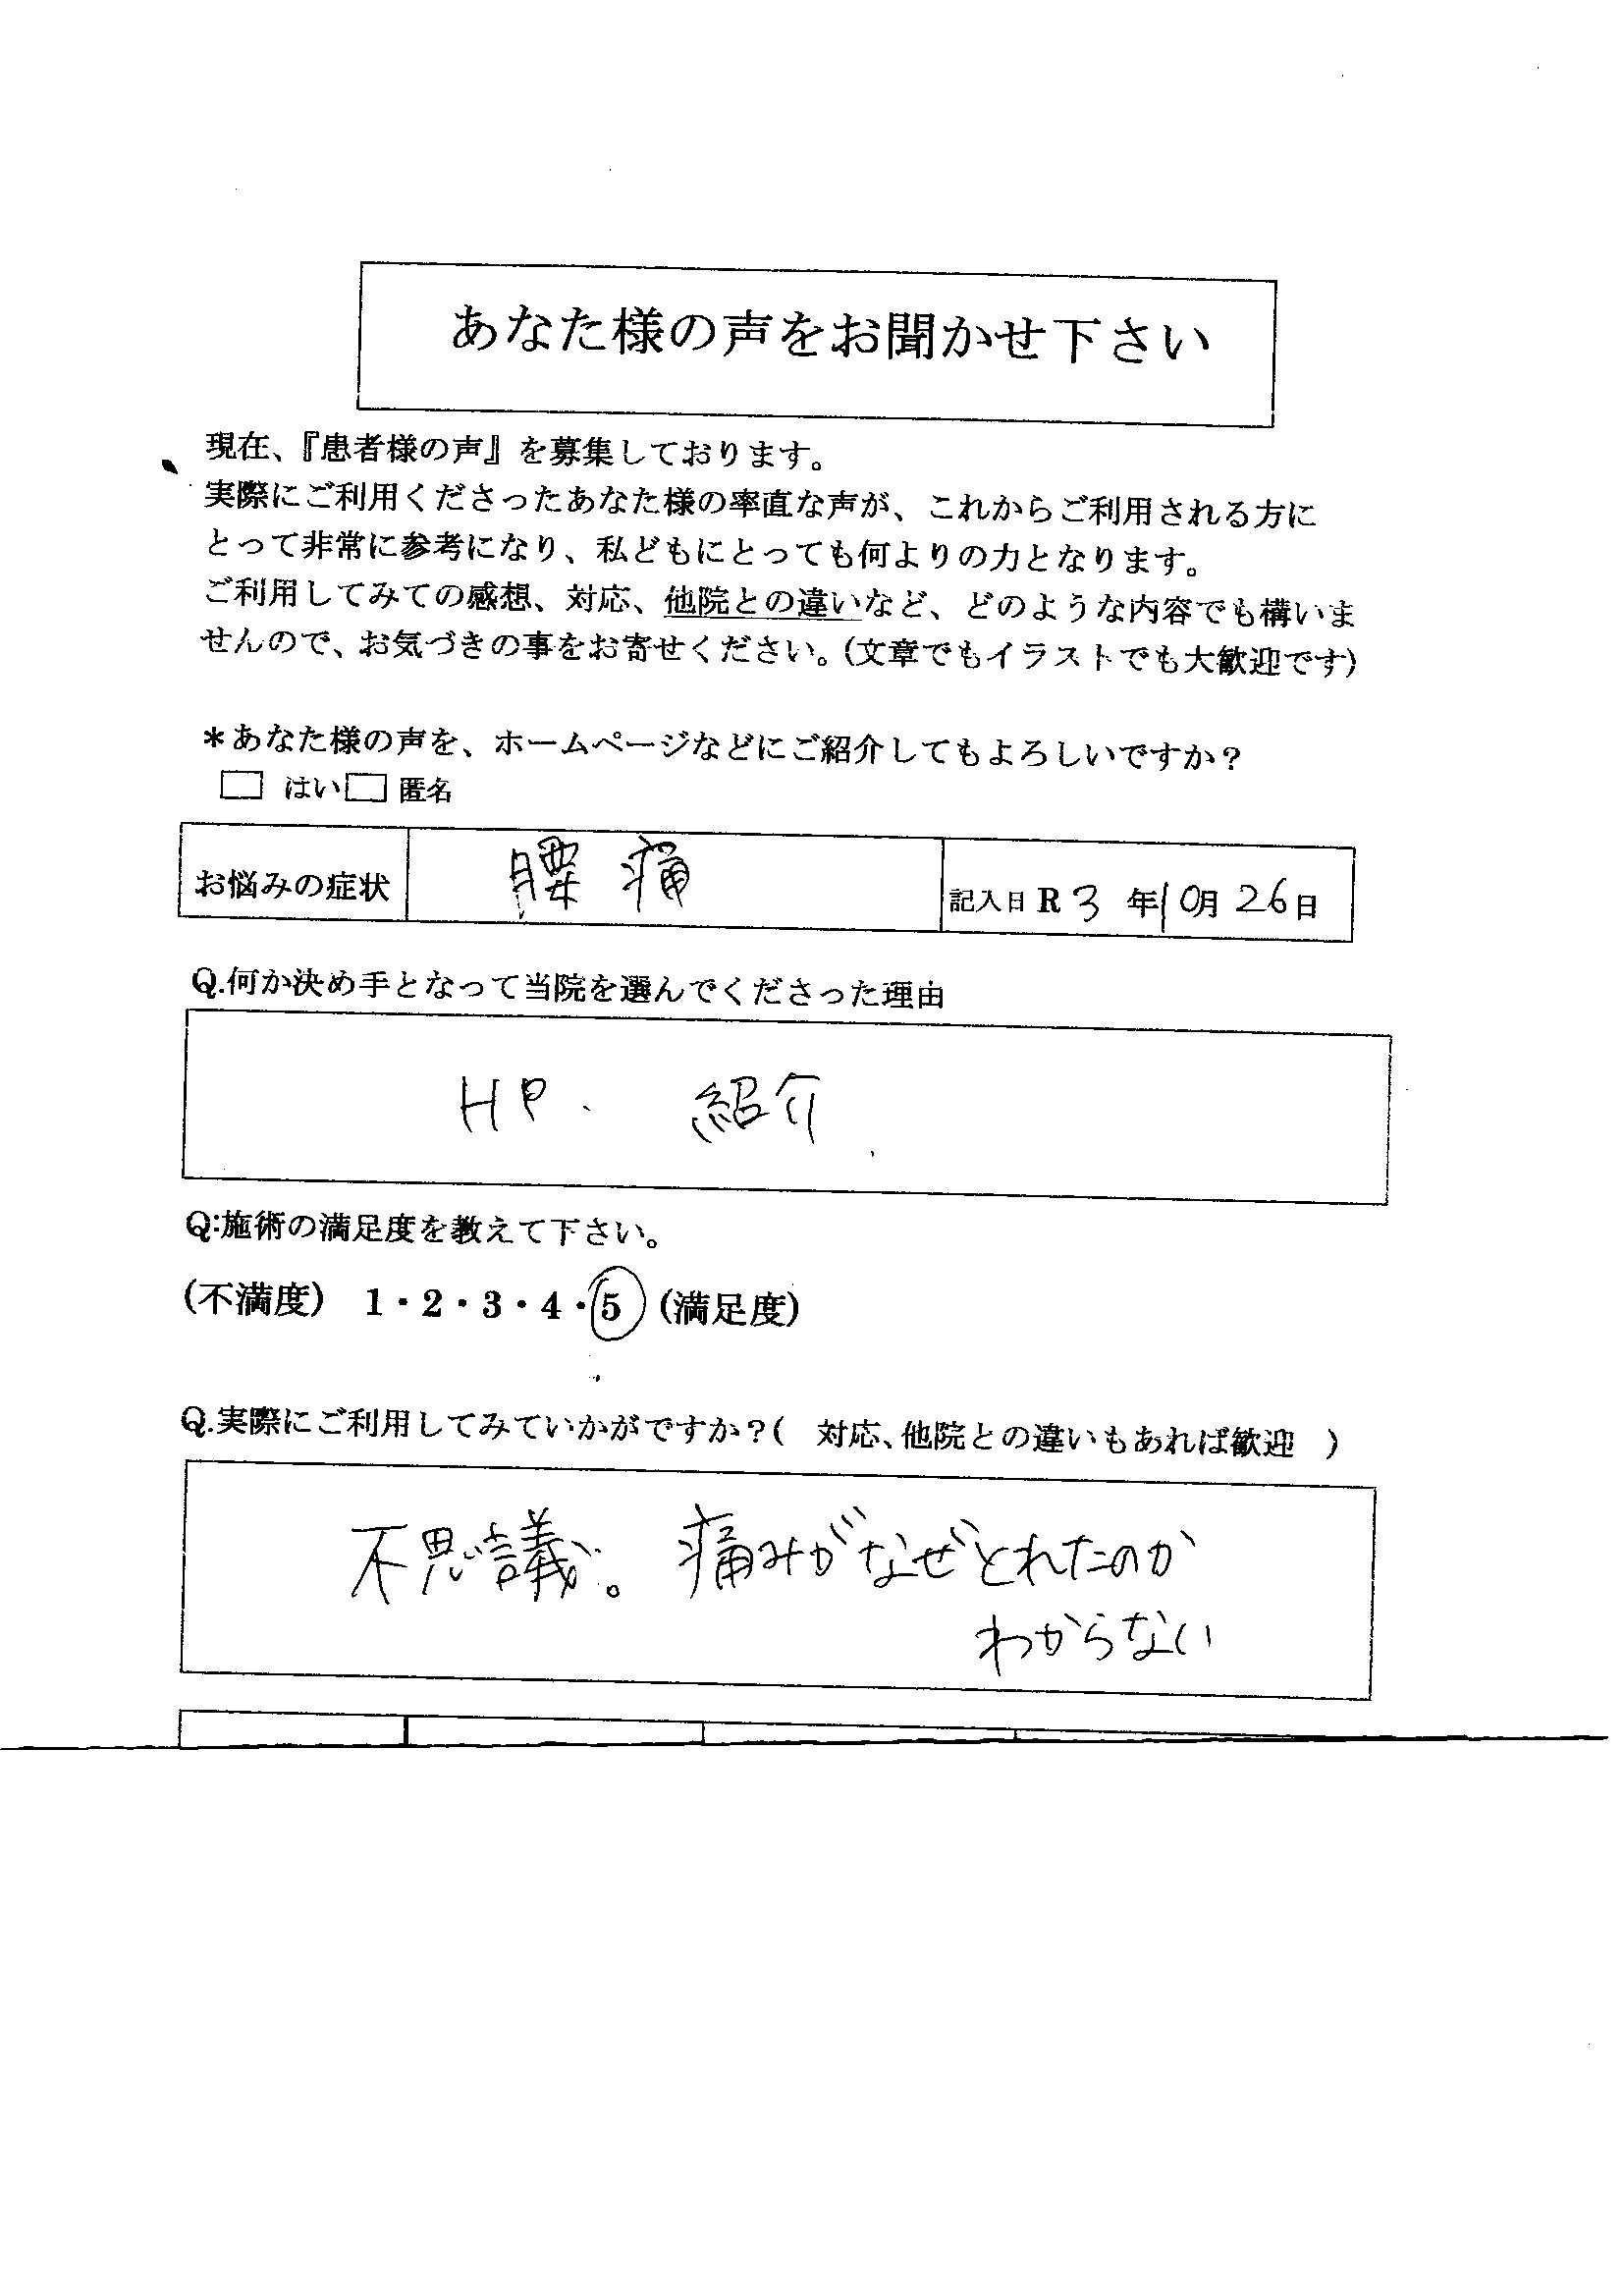 あなた様の声をお聞かせ下さい
現在、『患者様の声』を募集しております。
実際にご利用くださったあなた様の率直な声が、これからご利用される方に
とって非常に参考になり、私どもにとっても何よりの力となります。
ご利用してみての感想、対応、他院との違いなど、どのような内容でも構いま
せんので、お気づきの事をお寄せください。(文章でもイラストでも大歓迎です)
＊あなた様の声を、ホームページなどにご紹介してもよろしいですか？
□ はい□ 匿名
お悩みの症状 腰痛 記入日 R 3 年 10月 26日
Q.何か決め手となって当院を選んでくださった理由
HP. 紹介
Q:施術の満足度を教えて下さい。
(不満度) 1・2・3・4・5 (満足度)
Q.実際にご利用してみていかがですか？( 対応、他院との違いもあれば歓迎 )
不思議。痛みがなぜとれたのか
わからない